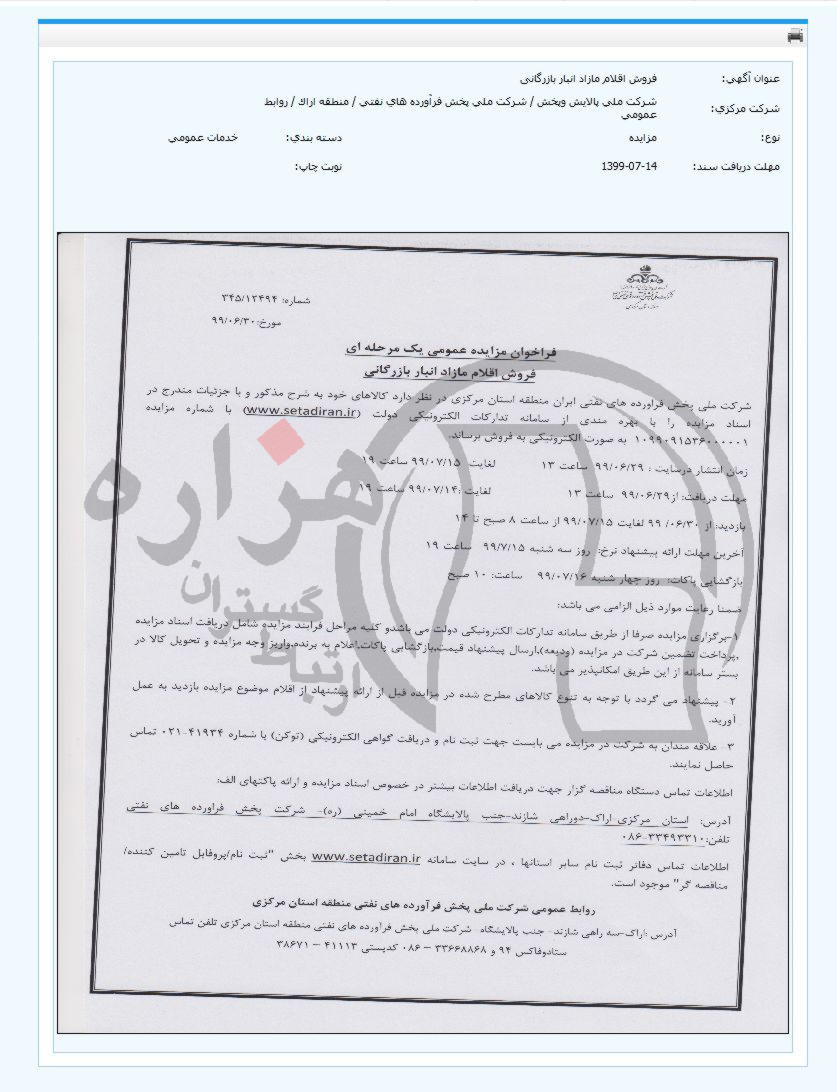 عنوان آگهي: فروش اقلام مازاد انبار بازرگانی
شركت مركزي: شركت ملي پالايش وپخش / شركت ملي پخش فرآورده هاي نفتي / منطقه اراك / روابط
عمومي
نوع: مزايده دسته بندي: خدمات عمومي
مهلت دريافت سند: 1399-07-14 نوبت چاپ:
شماره: ۳۴۵/۱۲۴۹۴
مورخ:۹۹/۰۶/۳۰
فراخوان مزایده عمومی یک مرحله ای
فروش اقلام مازاد انبار بازرگانی
شرکت ملی پخش فراورده های نفتی ایران منطقه استان مرکزی در نظر دارد کالاهای خود به شرح مذکور و با جزئیات مندرج در
اسناد مزایده را با بهره مندی از سامانه تدارکات الکترونیکی دولت (www.setadiran.ir) با شماره مزایده
۱۰۹۹۰۹۱۵۳۶۰۰۰۰۰۱ به صورت الکترونیکی به فروش برساند.
زمان انتشار درسایت : ۹۹/۰۶/۲۹ ساعت ۱۳ لغایت ۹۹/۰۷/۱۵ ساعت ۱۹
مهلت دریافت: از۹۹/۰۶/۲۹ ساعت ۱۳ لغایت :۹۹/۰۷/۱۴ ساعت ۱۹
بازدید: از ۹۹ /۰۶/۳۰ لغایت ۹۹/۰۷/۱۵ از ساعت ۸ صبح تا ۱۴
آخرین مهلت ارائه پیشنهاد نرخ: روز سه شنبه ۹۹/۷/۱۵ ساعت ۱۹
بازگشایی پاکات: روز چهار شنبه ۹۹/۰۷/۱۶ ساعت: ۱۰ صبح
ضمنا رعایت موارد ذیل الزامی می باشد:
۱-برگزاری مزایده صرفا از طریق سامانه تدارکات الکترونیکی دولت می باشدو کلیه مراحل فرایند مزایده شامل دریافت اسناد مزایده
,پرداخت تضمین شرکت در مزایده (ودیعه),ارسال پیشنهاد قیمت,بازگشایی پاکات,اعلام به برنده,واریز وجه مزایده و تحویل کالا در
بستر سامانه از این طریق امکانپذیر می باشد.
۲- پیشنهاد می گردد با توجه به تنوع کالاهای مطرح شده در مزایده قبل از ارائه پیشنهاد از اقلام موضوع مزایده بازدید به عمل
آورید.
۳- علاقه مندان به شرکت در مزایده می بایست جهت ثبت نام و دریافت گواهی الکترونیکی (توکن) با شماره ۴۱۹۳۴-۰۲۱ تماس
حاصل نمایند.
اطلاعات تماس دستگاه مناقصه گزار جهت دریافت اطلاعات بیشتر در خصوص اسناد مزایده و ارائه پاکتهای الف:
آدرس: استان مرکزی-اراک-دوراهی شازند-جنب پالایشگاه امام خمینی (ره)- شرکت پخش فراورده های نفتی
تلفن:۳۳۴۹۳۳۱۰-۰۸۶
اطلاعات تماس دفاتر ثبت نام سایر استانها ، در سایت سامانه www.setadiran.ir بخش "ثبت نام/پروفایل تامین کننده/
مناقصه گر" موجود است.
روابط عمومی شرکت ملی پخش فرآورده های نفتی منطقه استان مرکزی
آدرس :اراک-سه راهی شازند- جنب پالایشگاه شرکت ملی پخش فرآورده های نفتی منطقه استان مرکزی تلفن تماس
ستادوفاکس ۹۴ و ۳۳۶۶۸۸۶۸ – ۰۸۶ کدپستی ۴۱۱۱۳ – ۳۸۶۷۱
هزاره
گستران
ارتباط